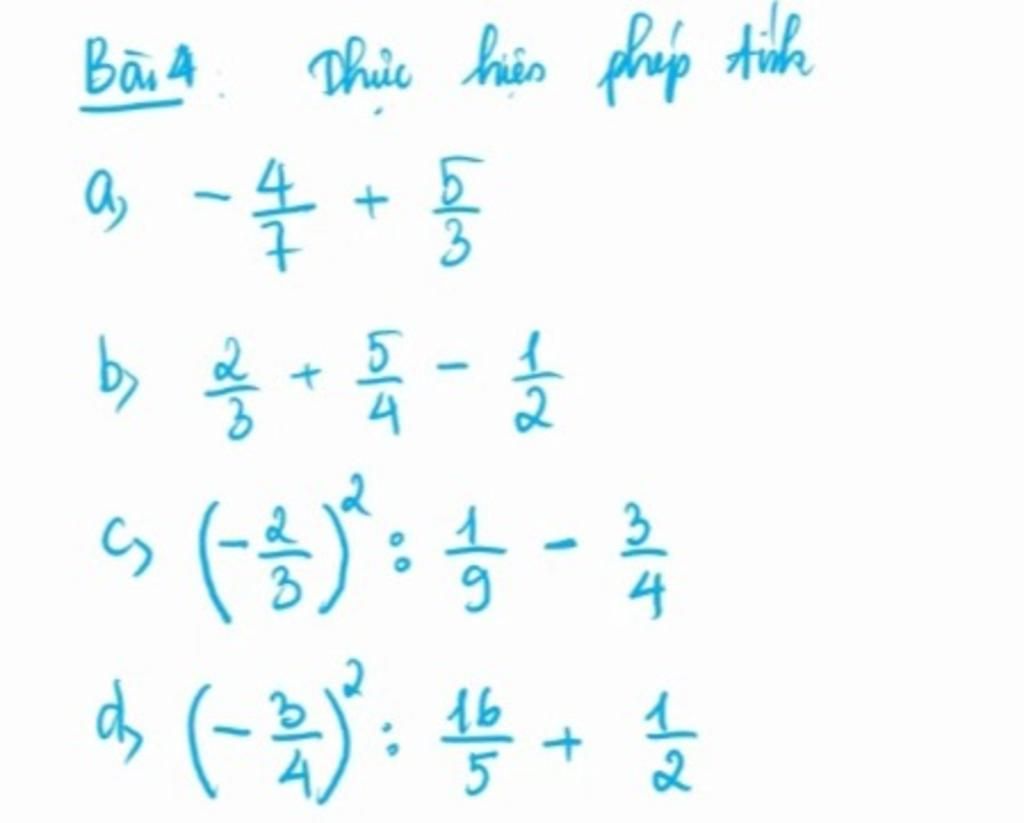 Bài 4: Thực hiện phép tính
a, - 4/7 + 5/3
b, 2/3 + 5/4 - 1/2
c, (- 2/3)² : 1/9 - 3/4
d, (- 3/4)² : 16/5 + 1/2